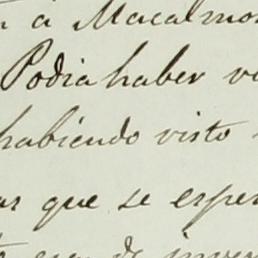 á Macalmo
Podia haber v
habiendo visto
as que se esper